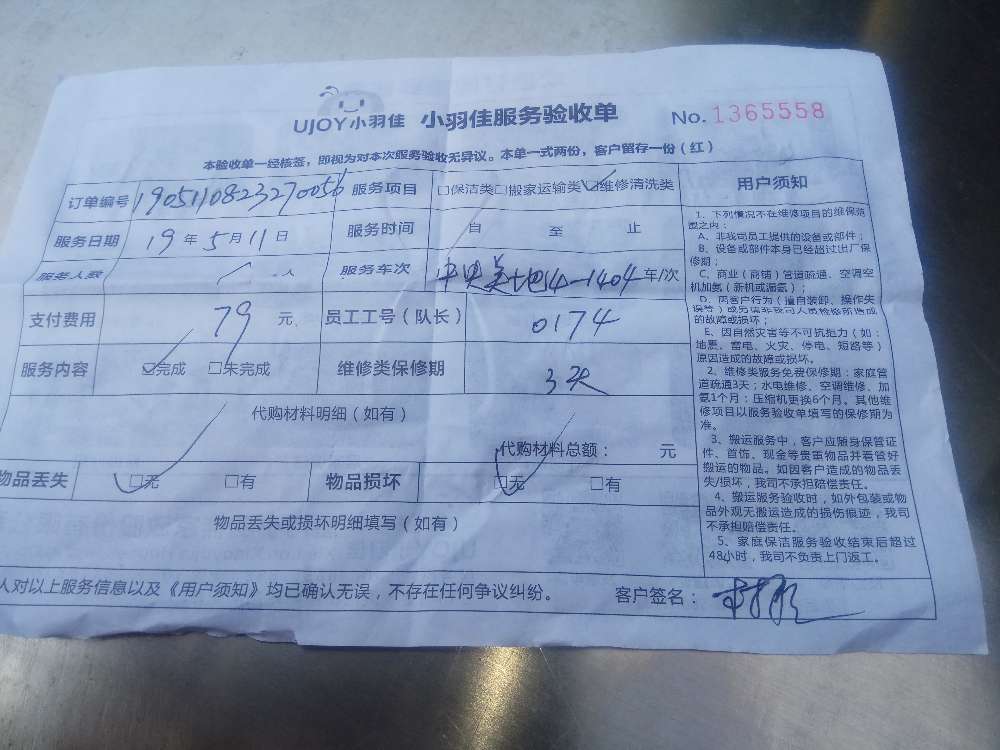 UJOY小羽佳 小羽佳服务验收单 No. 1365558
本验收单一经核签，即视为对本次服务验收无异议。本单一式两份，客户留存一份（红）
订单编号 1905110823270056 服务项目 □保洁类□搬家运输类☑维修清洗类
服务日期 19年5月11日 服务时间 自 至 止
服务人数 人 服务车次 中央美地14-1404车/次
支付费用 79 元 员工工号（队长） 0174
服务内容 ☑完成 □未完成 维修类保修期 3天
代购材料明细（如有）
代购材料总额： 元
物品丢失 ☑无 □有 物品损坏 ☑无 □有
物品丢失或损坏明细填写（如有）
人对以上服务信息以及《用户须知》均已确认无误，不存在任何争议纠纷。 客户签名：
用户须知
1、下列情况不在维修项目的维保范
围之内：
A、非我司员工提供的设备或部件；
B、设备或部件本身已经超过出厂保
修期；
C、商业（商铺）管道疏通、空调空
机加氨（新机或漏氨）；
D、因客户行为（擅自装卸、操作失
误等）或另请非我司人员检修所造成
的故障或损坏；
E、因自然灾害等不可抗拒力（如：
地震、雷电、火灾、停电、短路等）
原因造成的故障或损坏。
2、维修类服务免费保修期：家庭管
道疏通3天；水电维修、空调维修、加
氨1个月；压缩机更换6个月。其他维
修项目以服务验收单填写的保修期为
准。
3、搬运服务中，客户应随身保管证
件、首饰、现金等贵重物品并看管好
搬运的物品。如因客户造成的物品丢
失/损坏，我司不承担赔偿责任。
4、搬运服务验收时，如外包装或物
品外观无搬运造成的损伤痕迹，我司
不承担赔偿责任。
5、家庭保洁服务验收结束后超过
48小时，我司不负责上门返工。